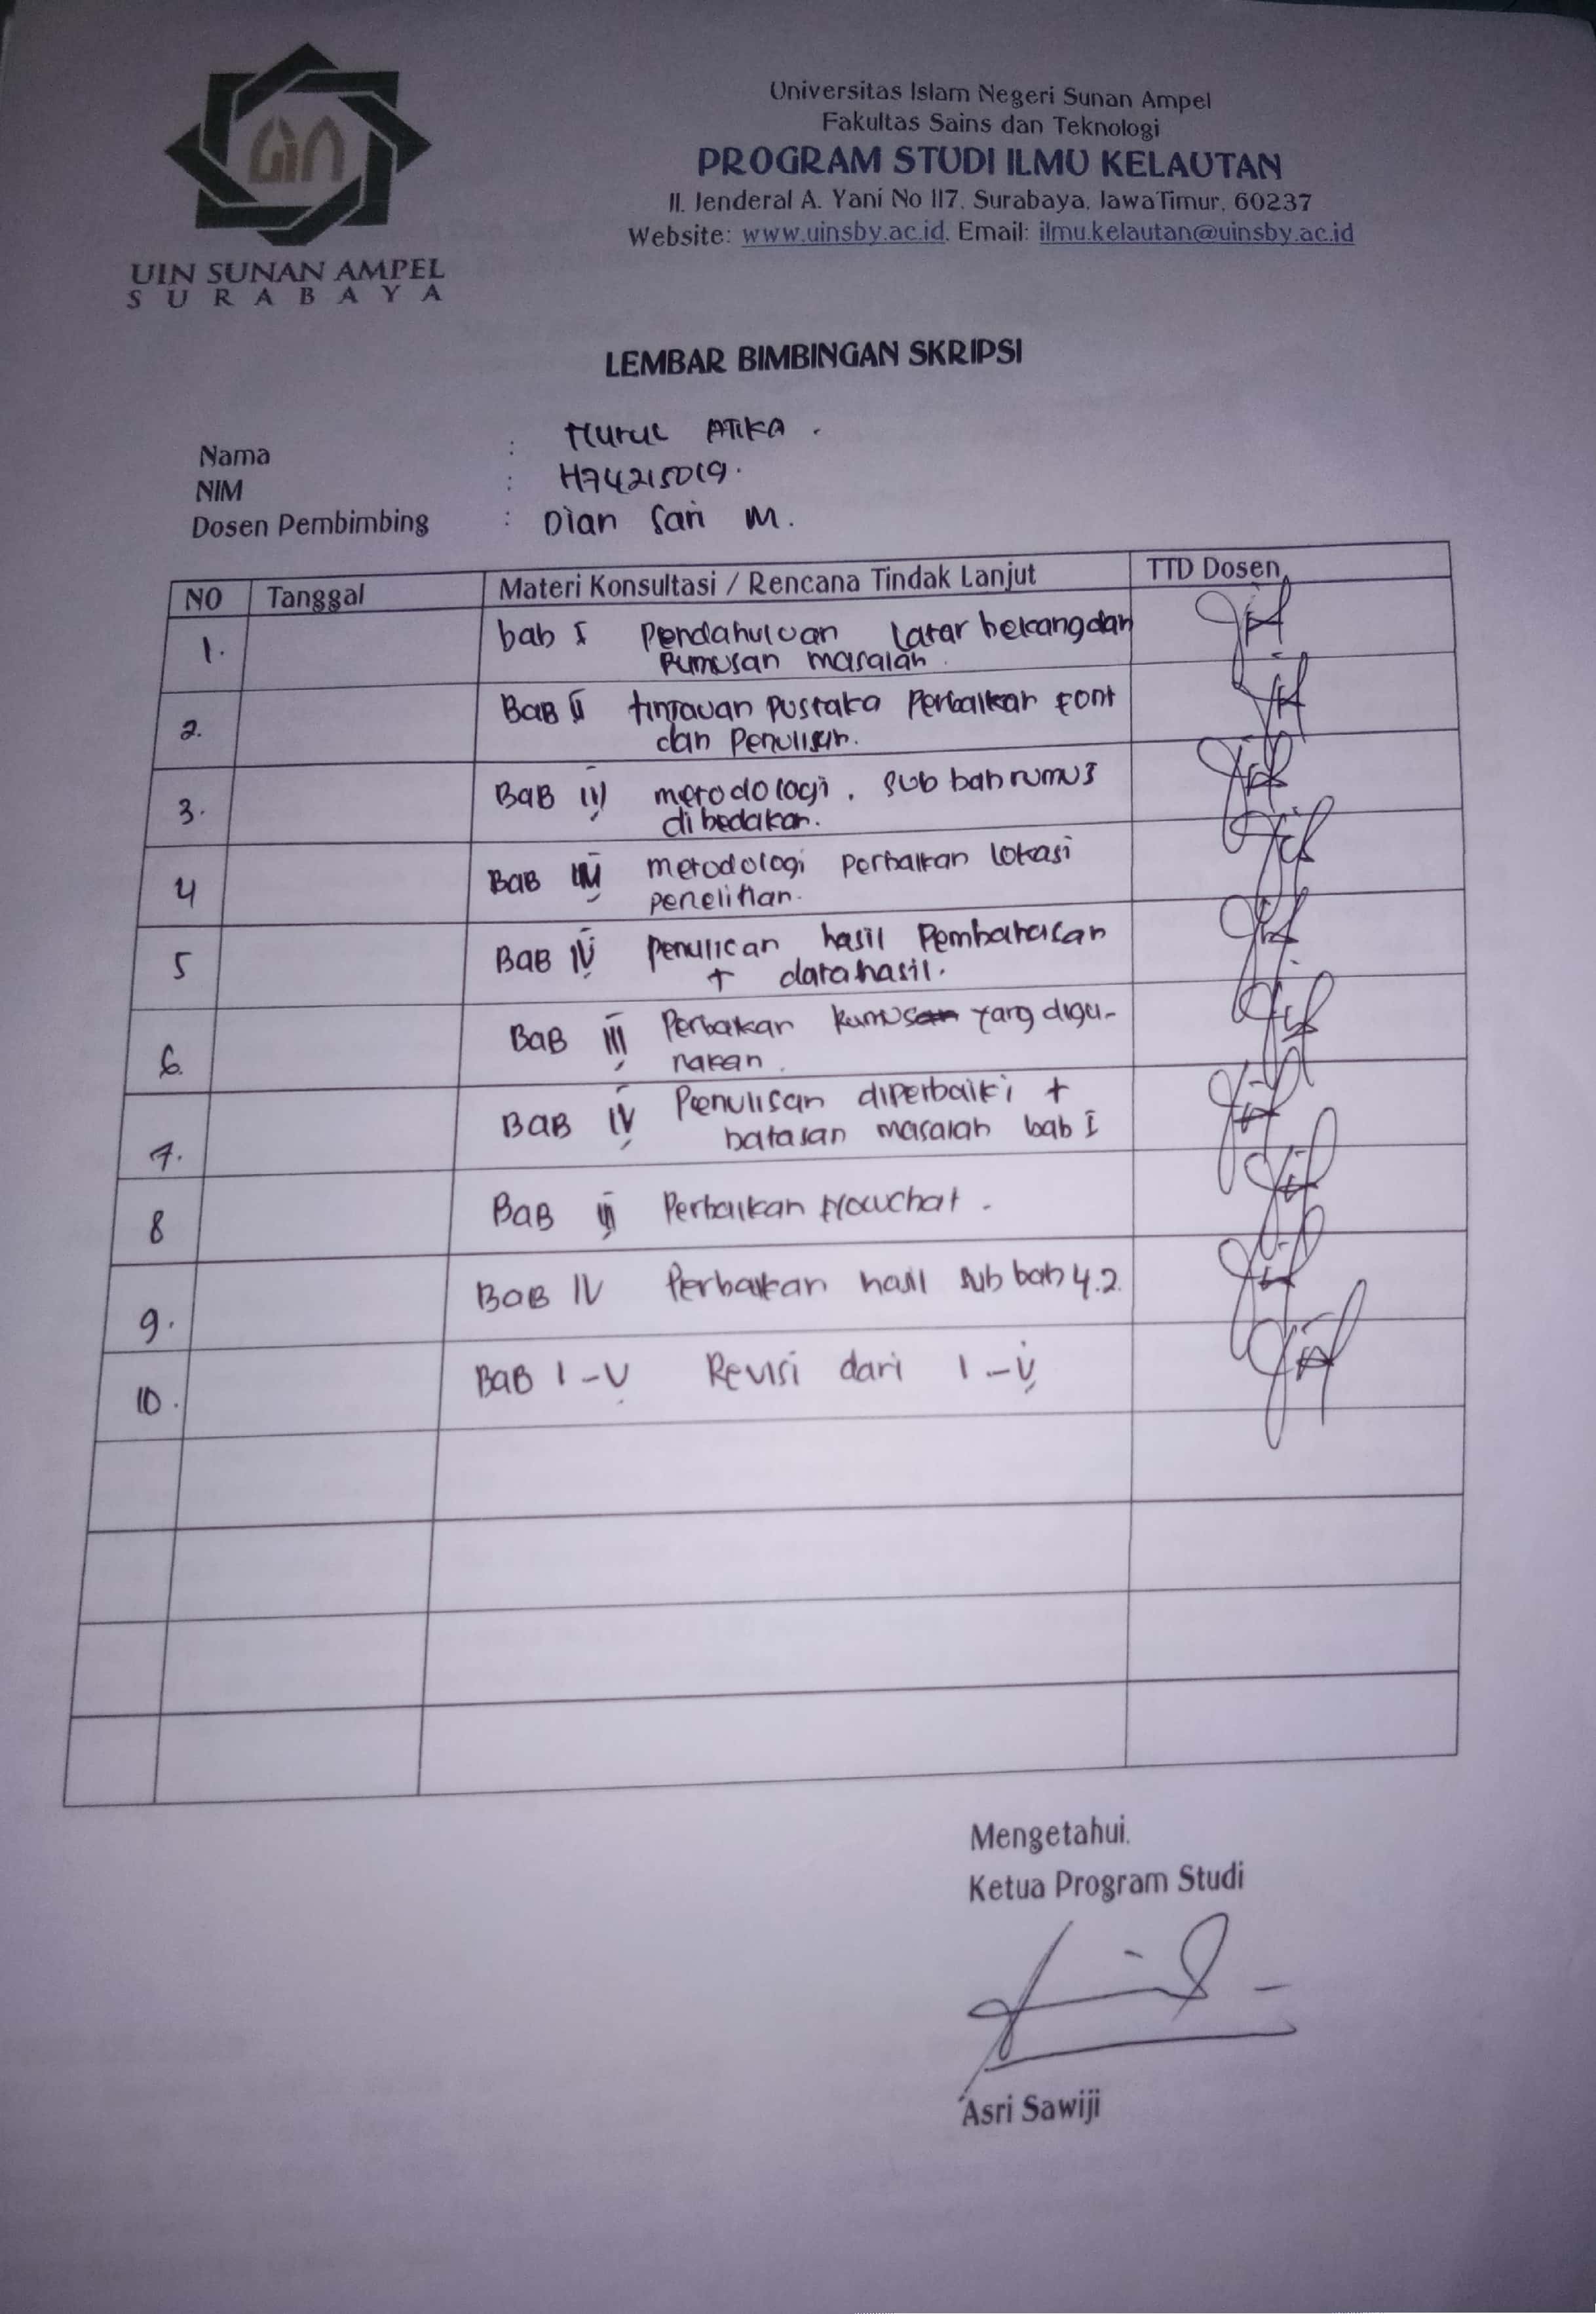 UIN SUNAN AMPEL
S U R A B A Y A
Universitas Islam Negeri Sunan Ampel
Fakultas Sains dan Teknologi
PROGRAM STUDI ILMU KELAUTAN
Jl. Jenderal A. Yani No 117. Surabaya, JawaTimur, 60237
Website: www.uinsby.ac.id. Email: ilmu.kelautan@uinsby.ac.id
LEMBAR BIMBINGAN SKRIPSI
Nama : Nurul ATIKA .
NIM : H74215019.
Dosen Pembimbing : Dian Sari M.
NO Tanggal Materi Konsultasi / Rencana Tindak Lanjut TTD Dosen
1. bab I Pendahuluan Latar belakang dan
Rumusan masalah .
2. BaB II tinjauan Pustaka Perbaikan Font
dan Penulisan.
3. BaB III metodologi . sub bab rumus
dibedakan.
4 BaB III metodologi Perbaikan lokasi
penelitian.
5 BaB IV penulisan hasil Pembahasan
+ data hasil.
6. BaB III Perbaikan Rumusan yang digu-
nakan .
7. BaB IV Penulisan diperbaiki +
batasan masalah bab I
8 BaB III Perbaikan Flowchat .
9. BaB IV Perbaikan hasil sub bab 4.2.
10. BaB I - V Revisi dari I - V
Mengetahui,
Ketua Program Studi
Asri Sawiji